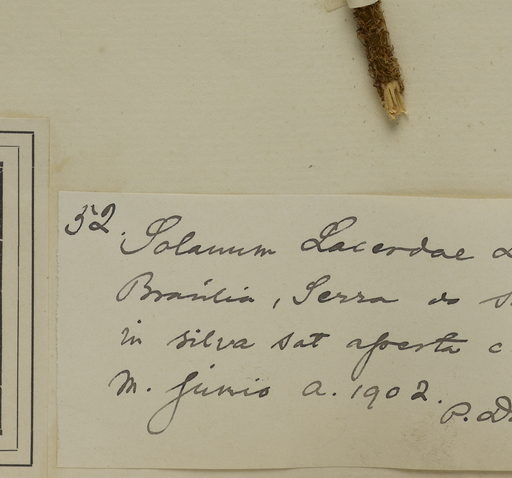 52. Solanum Lacerdae
Brasilia, Serra do
in silva sat aperta c
M. Junio a. 1902.
P. D